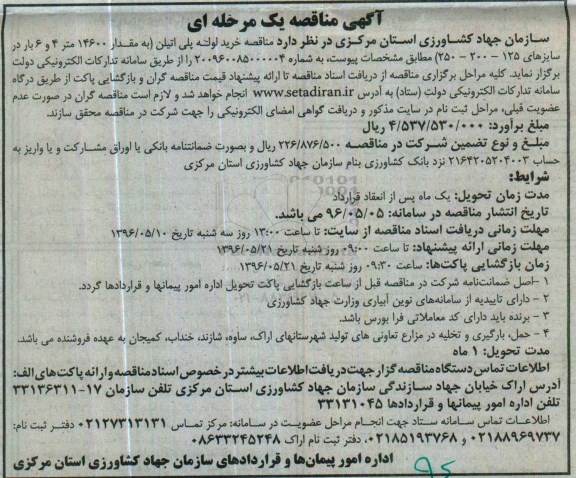 آگهی مناقصه یک مرحله ای
سازمان جهاد کشاورزی استان مرکزی در نظر دارد مناقصه خرید لوله پلی اتیلن (به مقدار ۱۴۶۰۰ متر ۴ و ۶ بار در
سایزهای ۱۲۵ – ۲۰۰ – ۲۵۰) مطابق مشخصات پیوست، به شماره ۲۰۰۹۶۰۰۸۵۰۰۰۰۰۴ را از طریق سامانه تدارکات الکترونیکی دولت
برگزار نماید. کلیه مراحل برگزاری مناقصه از دریافت اسناد مناقصه تا ارائه پیشنهاد قیمت مناقصه گران و بازگشایی پاکت از طریق درگاه
سامانه تدارکات الکترونیکی دولت (ستاد) به آدرس www.setadiran.ir انجام خواهد شد و لازم است مناقصه گران در صورت عدم
عضویت قبلی، مراحل ثبت نام در سایت مذکور و دریافت گواهی امضای الکترونیکی را جهت شرکت در مناقصه محقق سازند.
مبلغ برآورد: ۴/۵۳۷/۵۳۰/۰۰۰ ریال
مبلغ و نوع تضمین شرکت در مناقصه ۲۲۶/۸۷۶/۵۰۰ ریال و بصورت ضمانتنامه بانکی یا اوراق مشارکت و یا واریز به
حساب ۲۱۶۴۲۰۵۲۰۴۰۰۳ نزد بانک کشاورزی بنام سازمان جهاد کشاورزی استان مرکزی
شرایط:
مدت زمان تحویل: یک ماه پس از انعقاد قرارداد
تاریخ انتشار مناقصه در سامانه: ۹۶/۰۵/۰۵ می باشد.
مهلت زمانی دریافت اسناد مناقصه از سایت: تا ساعت ۱۳:۰۰ روز سه شنبه تاریخ ۱۳۹۶/۰۵/۱۰
مهلت زمانی ارائه پیشنهاد: تا ساعت ۰۹:۰۰ روز شنبه تاریخ ۱۳۹۶/۰۵/۲۱
زمان بازگشایی پاکت‌ها: ساعت ۰۹:۳۰ روز شنبه تاریخ ۱۳۹۶/۰۵/۲۱
۱ –اصل ضمانت‌نامه شرکت در مناقصه قبل از ساعت بازگشایی پاکت تحویل اداره امور پیمانها و قراردادها گردد.
۲ – دارای تاییدیه از سامانه‌های نوین آبیاری وزارت جهاد کشاورزی
۳ – برنده باید دارای کد معاملاتی فرا بورس باشد.
۴ – حمل، بارگیری و تخلیه در مزارع تعاونی های تولید شهرستانهای اراک، ساوه، شازند، خنداب، کمیجان به عهده فروشنده می باشد.
مدت تحویل: ۱ ماه
اطلاعات تماس دستگاه مناقصه گزار جهت دریافت اطلاعات بیشتر در خصوص اسناد مناقصه و ارائه پاکت‌های الف:
آدرس اراک خیابان جهاد سازندگی سازمان جهاد کشاورزی استان مرکزی تلفن سازمان ۱۷-۳۳۱۳۶۳۱۱
تلفن اداره امور پیمانها و قراردادها ۳۳۱۳۱۰۴۵
اطلاعات تماس سامانه ستاد جهت انجام مراحل عضویت در سامانه: مرکز تماس ۰۲۱۲۷۳۱۳۱۳۱ دفتر ثبت نام:
۰۲۱۸۸۹۶۹۷۳۷ و ۰۲۱۸۵۱۹۳۷۶۸، دفتر ثبت نام اراک ۰۸۶۳۳۲۴۵۲۴۸
اداره امور پیمان‌ها و قراردادهای سازمان جهاد کشاورزی استان مرکزی